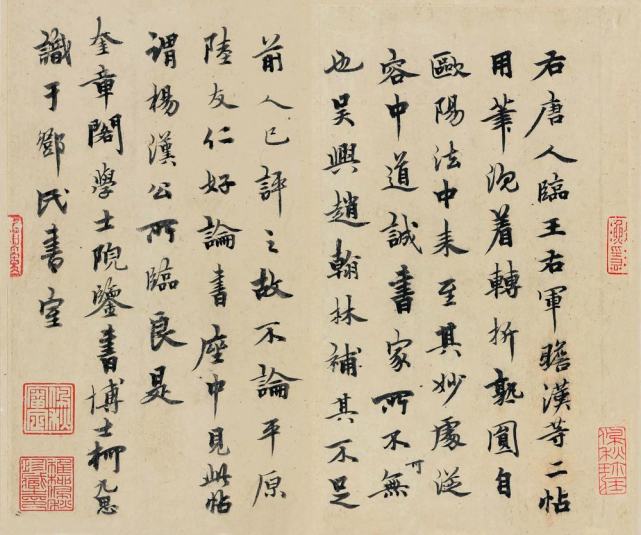 右唐人臨王右軍瞻漢等二帖
用筆沉着轉折熟圓自
歐陽法中來至其妙處從
容中道誠書家所不可無
也吳興趙翰林補其不足
前人已評之故不論平原
陸友仁好論書座中見此帖
謂楊漢公所臨良是
奎章閣學士院鑒書博士柯九思
識于鄧民書室